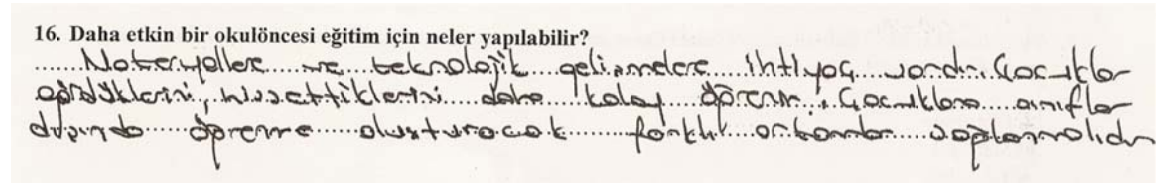 16. Daha etkin bir okulöncesi eğitim için neler yapılabilir?
Materyaller ve teknolojik gelişmelere ihtiyaç vardır. Çocuklar
gördüklerini, hissettiklerini daha kolay öğrenir. Çocuklara sınıflar
dışında öğrenme oluşturacak farklı ortamlar sağlanmalıdır